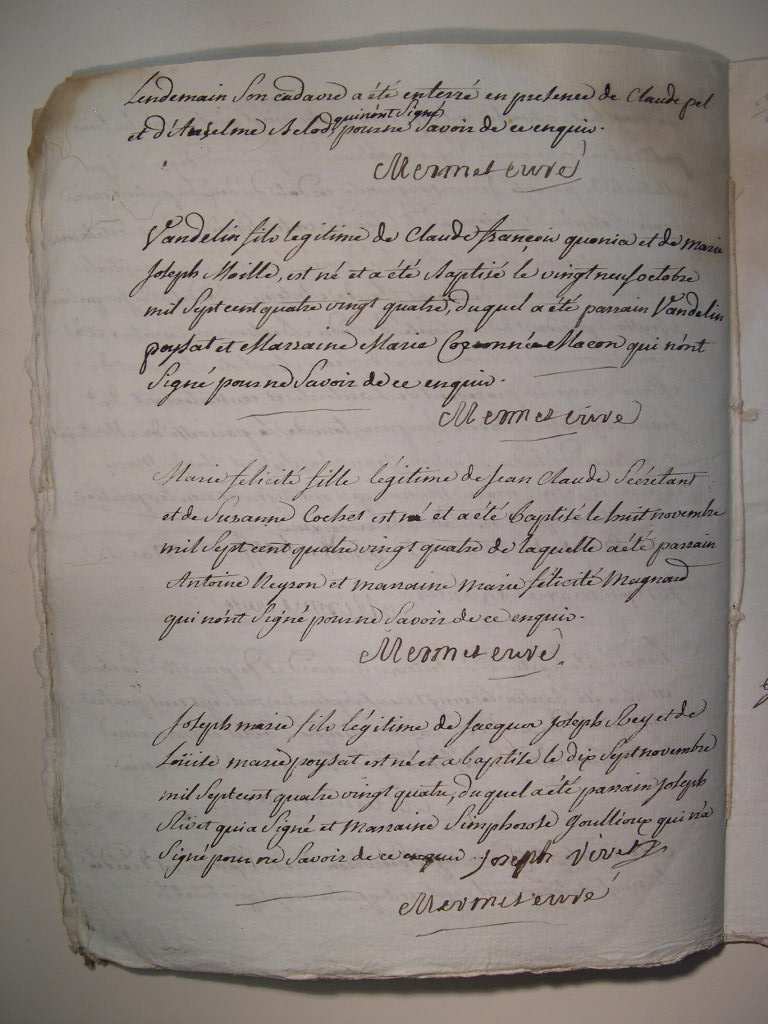 Lendemain Son cadavre a été enterré en presence de Claude pel
qui n'ont Signé
et d'Anselme pour ne Savoir de ce enquis.
Mermet curé
Vandelin fils legitime de Claude françois quonia et de marie
Joseph Moille, est né et a été Baptisé le vingt neuf octobre
mil Sept cent quatre vingt quatre, duquel a été parrain Vandelin
poysat et Marraine Marie Macon qui n'ont
Signé pour ne Savoir de ce enquis.
Mermet curé
Marie felicité fille légitime de Jean Claude Secrétant
et de Suzanne Cochet est né et a été Baptisé le huit novembre
mil Sept cent quatre vingt quatre de laquelle a été parrain
Antoine Neyron et marraine marie félicité Magnard
qui n'ont Signé pour ne Savoir de ce enquis.
Mermet curé
Joseph marie fils légitime de Jacque Joseph Rey et de
Loüise marie poysat est né et a baptisé le dix Sept novembre
mil Sept cent quatre vingt quatre, duquel a été parrain Joseph
qui a Signé et Marraine Simphorose Goullioux qui n'a
Signé pour ne Savoir de ce enquise. Joseph Vivet
Mermet curé